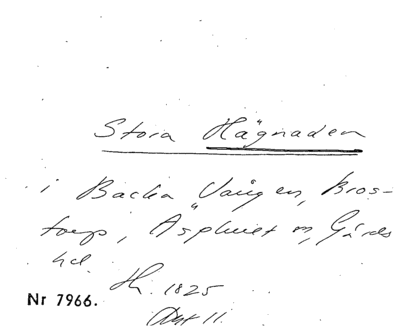 Stora Hägnaden
i Backa Vången, Bros-
torp, Äsphult sn, Gärds
hd.
Hh. 1825
Akt 11.
Nr 7966.